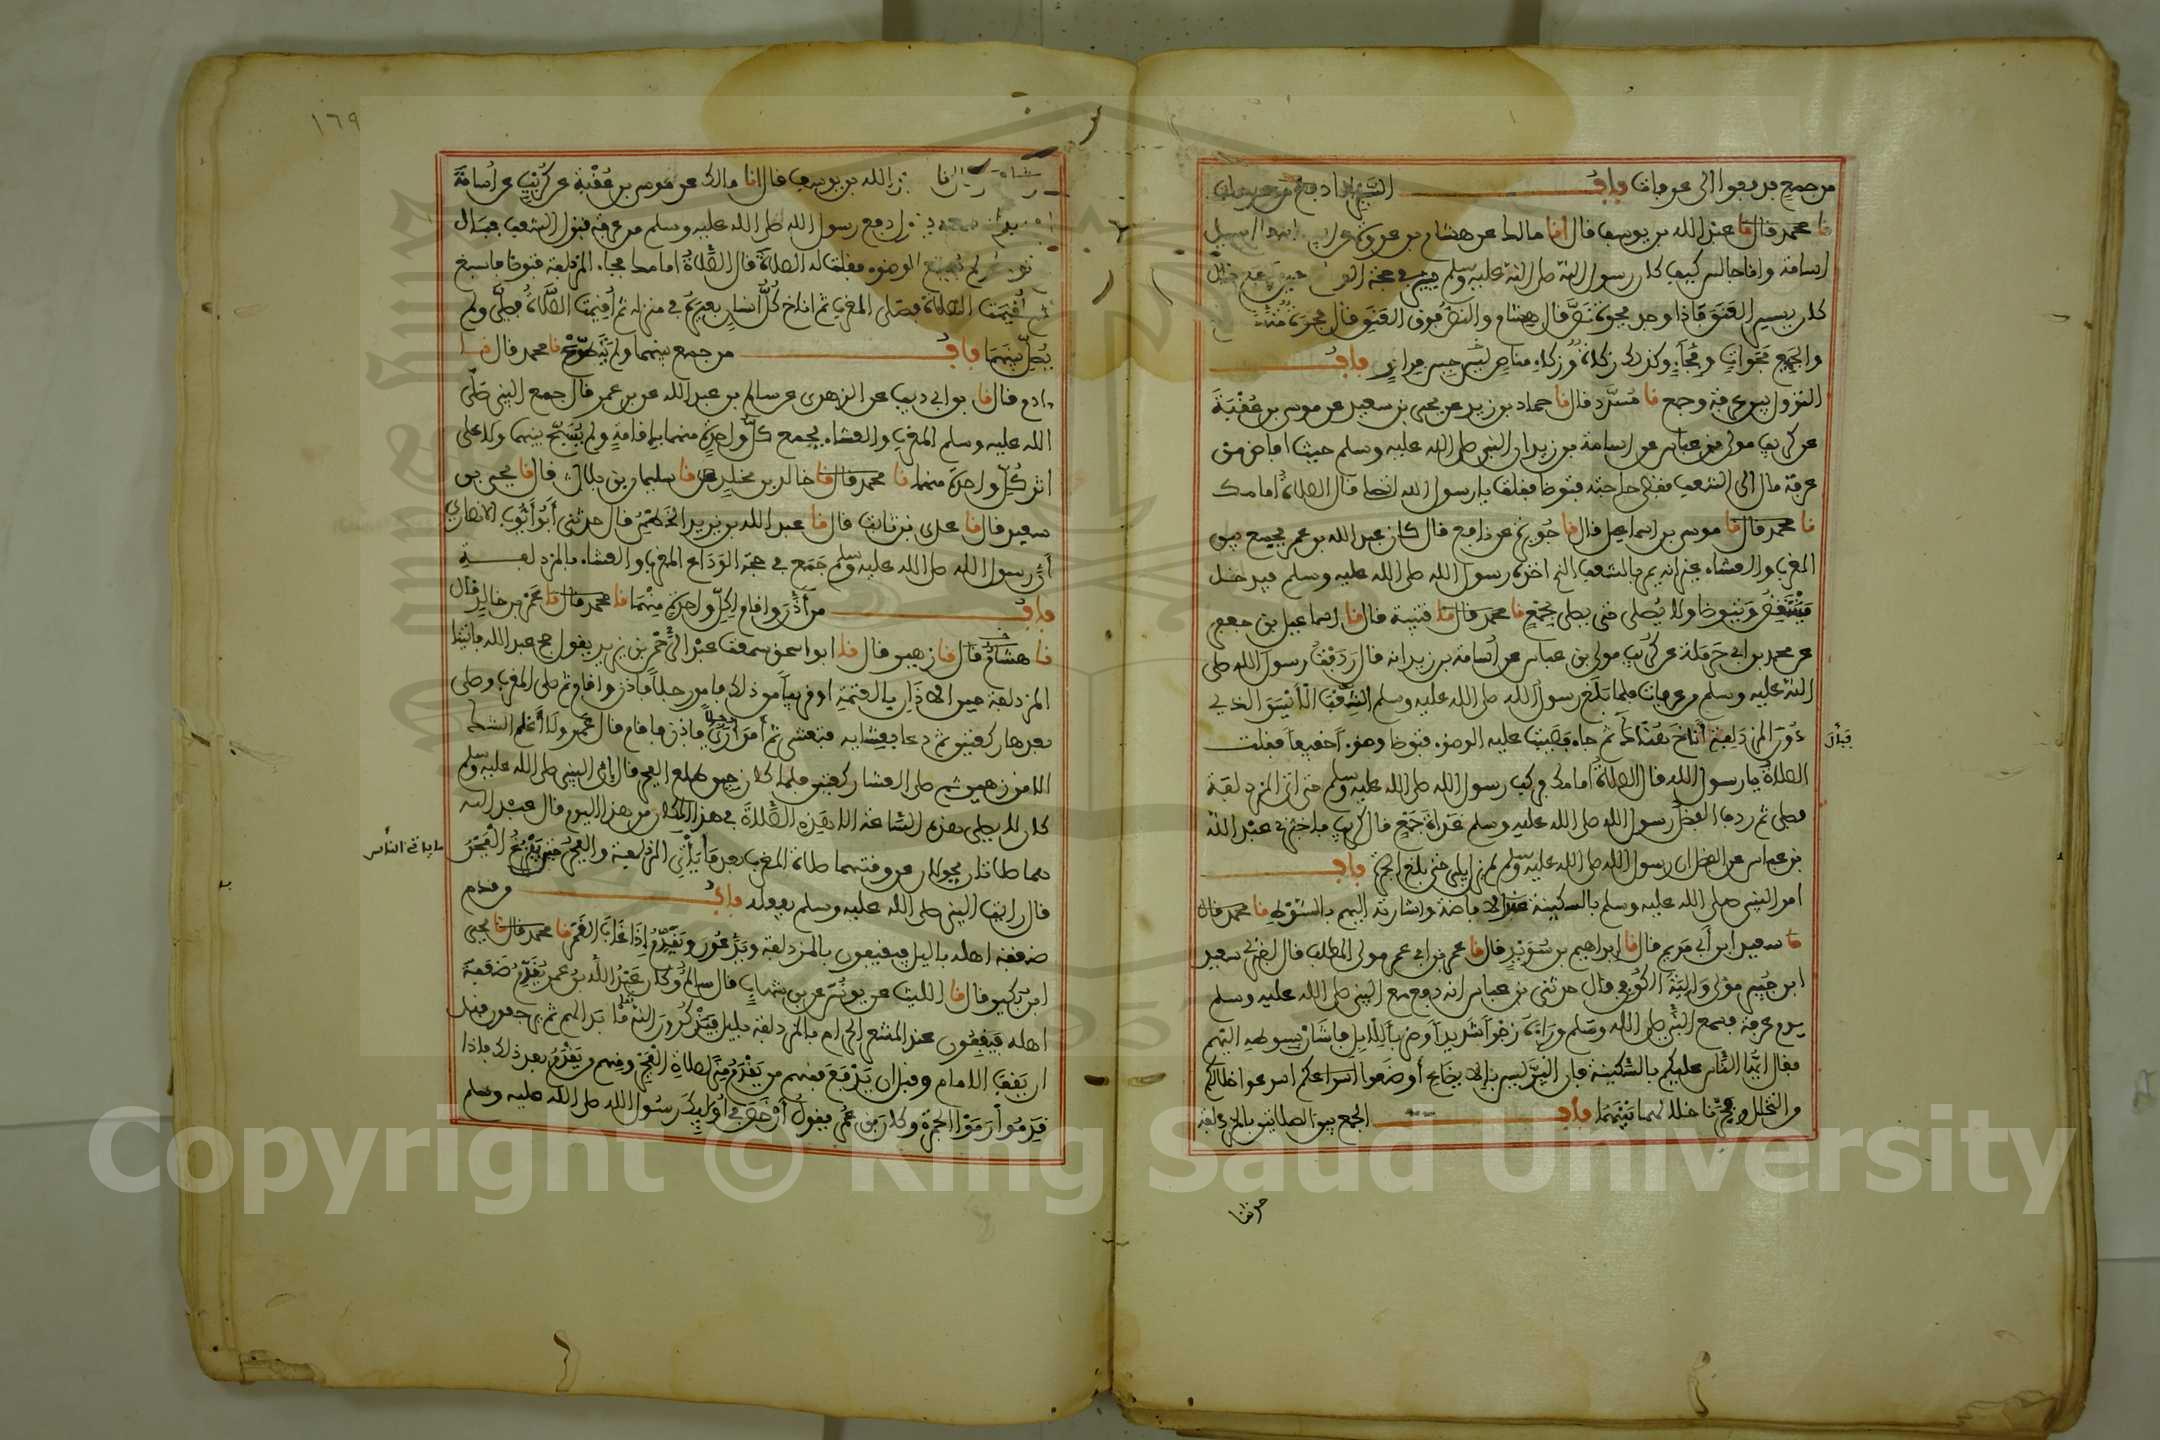 من جمع فدفعوا الى عرفات باب السير اذا دفع من عرفات
نا محمد قال نا عبد الله بن يوسف قال انا مالك عن هشام بن عروة عن ابيه انه قال سيل
اسامة وانا جالس كيف كان رسول الله صلى الله عليه وسلم يسير في حجة الوداع حين دفع قال
كان يسير العنق فاذا وجد فجوة نص قال هشام والنص فوق العنق قال فجوة متسع
والجميع فجوات وفجاء وكذلك ركوة وركاء مناص ليس حين فرار باب
النزول بين عرفة وجمع نا مسدد قال نا حماد بن زيد عن يحيى بن سعيد عن موسى بن عقبة
عن كريب مولى بن عباس عن اسامة بن زيد ان النبي صلى الله عليه وسلم حيث افاض من
عرفة مال الى الشعب فقضى حاجته فتوضا فقلت يا رسول الله اتصلي قال الصلاة امامك
نا محمد قال نا موسى بن اسماعيل قال نا جويرية عن نافع قال كان عبد الله بن عمر يجمع بين
المغرب والعشاء بجمع غير انه يمر بالشعب الذي اخذه رسول الله صلى الله عليه وسلم فيدخل
فينتفض ويتوضا ولا يصلي حتى يصلي بجمع نا محمد قال نا قتيبة قال نا اسماعيل بن جعفر
عن محمد بن ابي حرملة عن كريب مولى بن عباس عن اسامة بن زيد انه قال ردفت رسول الله صلى
الله عليه وسلم من عرفات فلما بلغ رسول الله صلى الله عليه وسلم الشعب الايسر الذي
دون المزدلفة اناخ فبال ثم جاء فصببت عليه الوضوء فتوضا وضوءا خفيفا فقلت
فبال
الصلاة يا رسول الله قال الصلاة امامك فركب رسول الله صلى الله عليه وسلم حتى اتى المزدلفة
فصلى ثم ردف الفضل رسول الله صلى الله عليه وسلم غداة جمع قال كريب فاخبرني عبد الله
بن عباس عن الفضل ان رسول الله صلى الله عليه وسلم لم يزل يلبي حتى بلغ الجمرة باب
امر النبي صلى الله عليه وسلم بالسكينة عند الافاضة واشارته اليهم بالسوط نا محمد قال
نا سعيد ابن أبي مريم قال نا ابراهيم بن سويد قال نا عمرو بن ابي عمرو مولى المطلب قال اخبرني سعيد
ابن جبير مولى والبة الكوفي قال حدثني بن عباس انه دفع مع النبي صلى الله عليه وسلم
يوم عرفة فسمع النبي صلى الله عليه وسلم وراءه زجرا شديدا وضربا للابل فاشار بسوطه اليهم
فقال ايها الناس عليكم بالسكينة فان البر ليس بالايضاع أوضعوا أسرعوا خلالكم
من التخلل بينكم وفجرنا خلالهما بينهما باب الجمع بين الصلاتين بالمزدلفة
حدثنا
١٦٩
نا عبد الله بن يوسف قال انا مالك عن موسى بن عقبة عن كريب عن اسامة
بن زيد انه سمعه يقول دفع رسول الله صلى الله عليه وسلم من عرفة فنزل الشعب فبال
ثم توضا ولم يسبغ الوضوء فقلت له الصلاة قال الصلاة امامك فجاء المزدلفة فتوضا فاسبغ
ثم أقيمت الصلاة فصلى المغرب ثم اناخ كل انسان بعيره في منزله ثم اقيمت الصلاة فصلى ولم
يصل بينهما باب من جمع بينهما ولم يتطوع نا محمد قال نا
ادم قال نا بن ابي ذيب عن الزهري عن سالم بن عبد الله عن بن عمر قال جمع النبي صلى
الله عليه وسلم المغرب والعشاء بجمع كل واحدة منهما باقامة ولم يسبح بينهما ولا على
اثر كل واحدة منهما نا محمد قال نا خالد بن مخلد نا سليمان بن بلال قال نا يحيى بن
سعيد قال نا عدي بن ثابت قال نا عبد الله بن يزيد الخطمي قال حدثني أبو أيوب الانصاري
أن رسول الله صلى الله عليه وسلم جمع في حجة الوداع المغرب والعشاء بالمزدلفة
باب من أذن واقام لكل واحدة منهما نا محمد قال نا عمرو بن خالد قال
نا زهير قال نا ابو اسحق سمعت عبد الرحمن بن يزيد يقول حج عبد الله فاتينا
المزدلفة حين الاذان بالعتمة او قريبا من ذلك فامر رجلا فاذن واقام ثم صلى المغرب وصلى
بعدها ركعتين ثم دعا بعشايه فتعشى ثم أمر أرى رجلا فاذن واقام قال عمرو ولا أعلم الشك
الا من زهير ثم صلى العشا ركعتين فلما كان حين طلع الفجر قال ان النبي صلى الله عليه وسلم
كان لا يصلي هذه الساعة الا هذه الصلاة في هذا المكان من هذا اليوم قال عبد الله
هما صلاتان تحولان عن وقتهما صلاة المغرب بعد ما يأتي المزدلفة والفجر حين يبزغ الفجر
ما ياتي الناس
قال رايت النبي صلى الله عليه وسلم يفعله باب من قدم
ضعفة اهله بليل فيقفون بالمزدلفة ويدعون ويقدم إذا غاب القمر نا محمد قال نا يحيى
ابن بكير قال نا الليث عن يونس عن بن شهاب قال سالم وكان عبد الله بن عمر يقدم ضعفة
اهله فيقفون عند المشعر الحرام بالمزدلفة بليل فيذكرون الله ما بدا لهم ثم يرجعون قبل
ان يقف الامام وقبل ان يدفع فمنهم من يقدم منى لصلاة الفجر ومنهم من يقدم بعد ذلك فاذا
قدموا رموا الجمرة وكان بن عمر يقول أرخص في أوليك رسول الله صلى الله عليه وسلم
Copyright © King Saud University